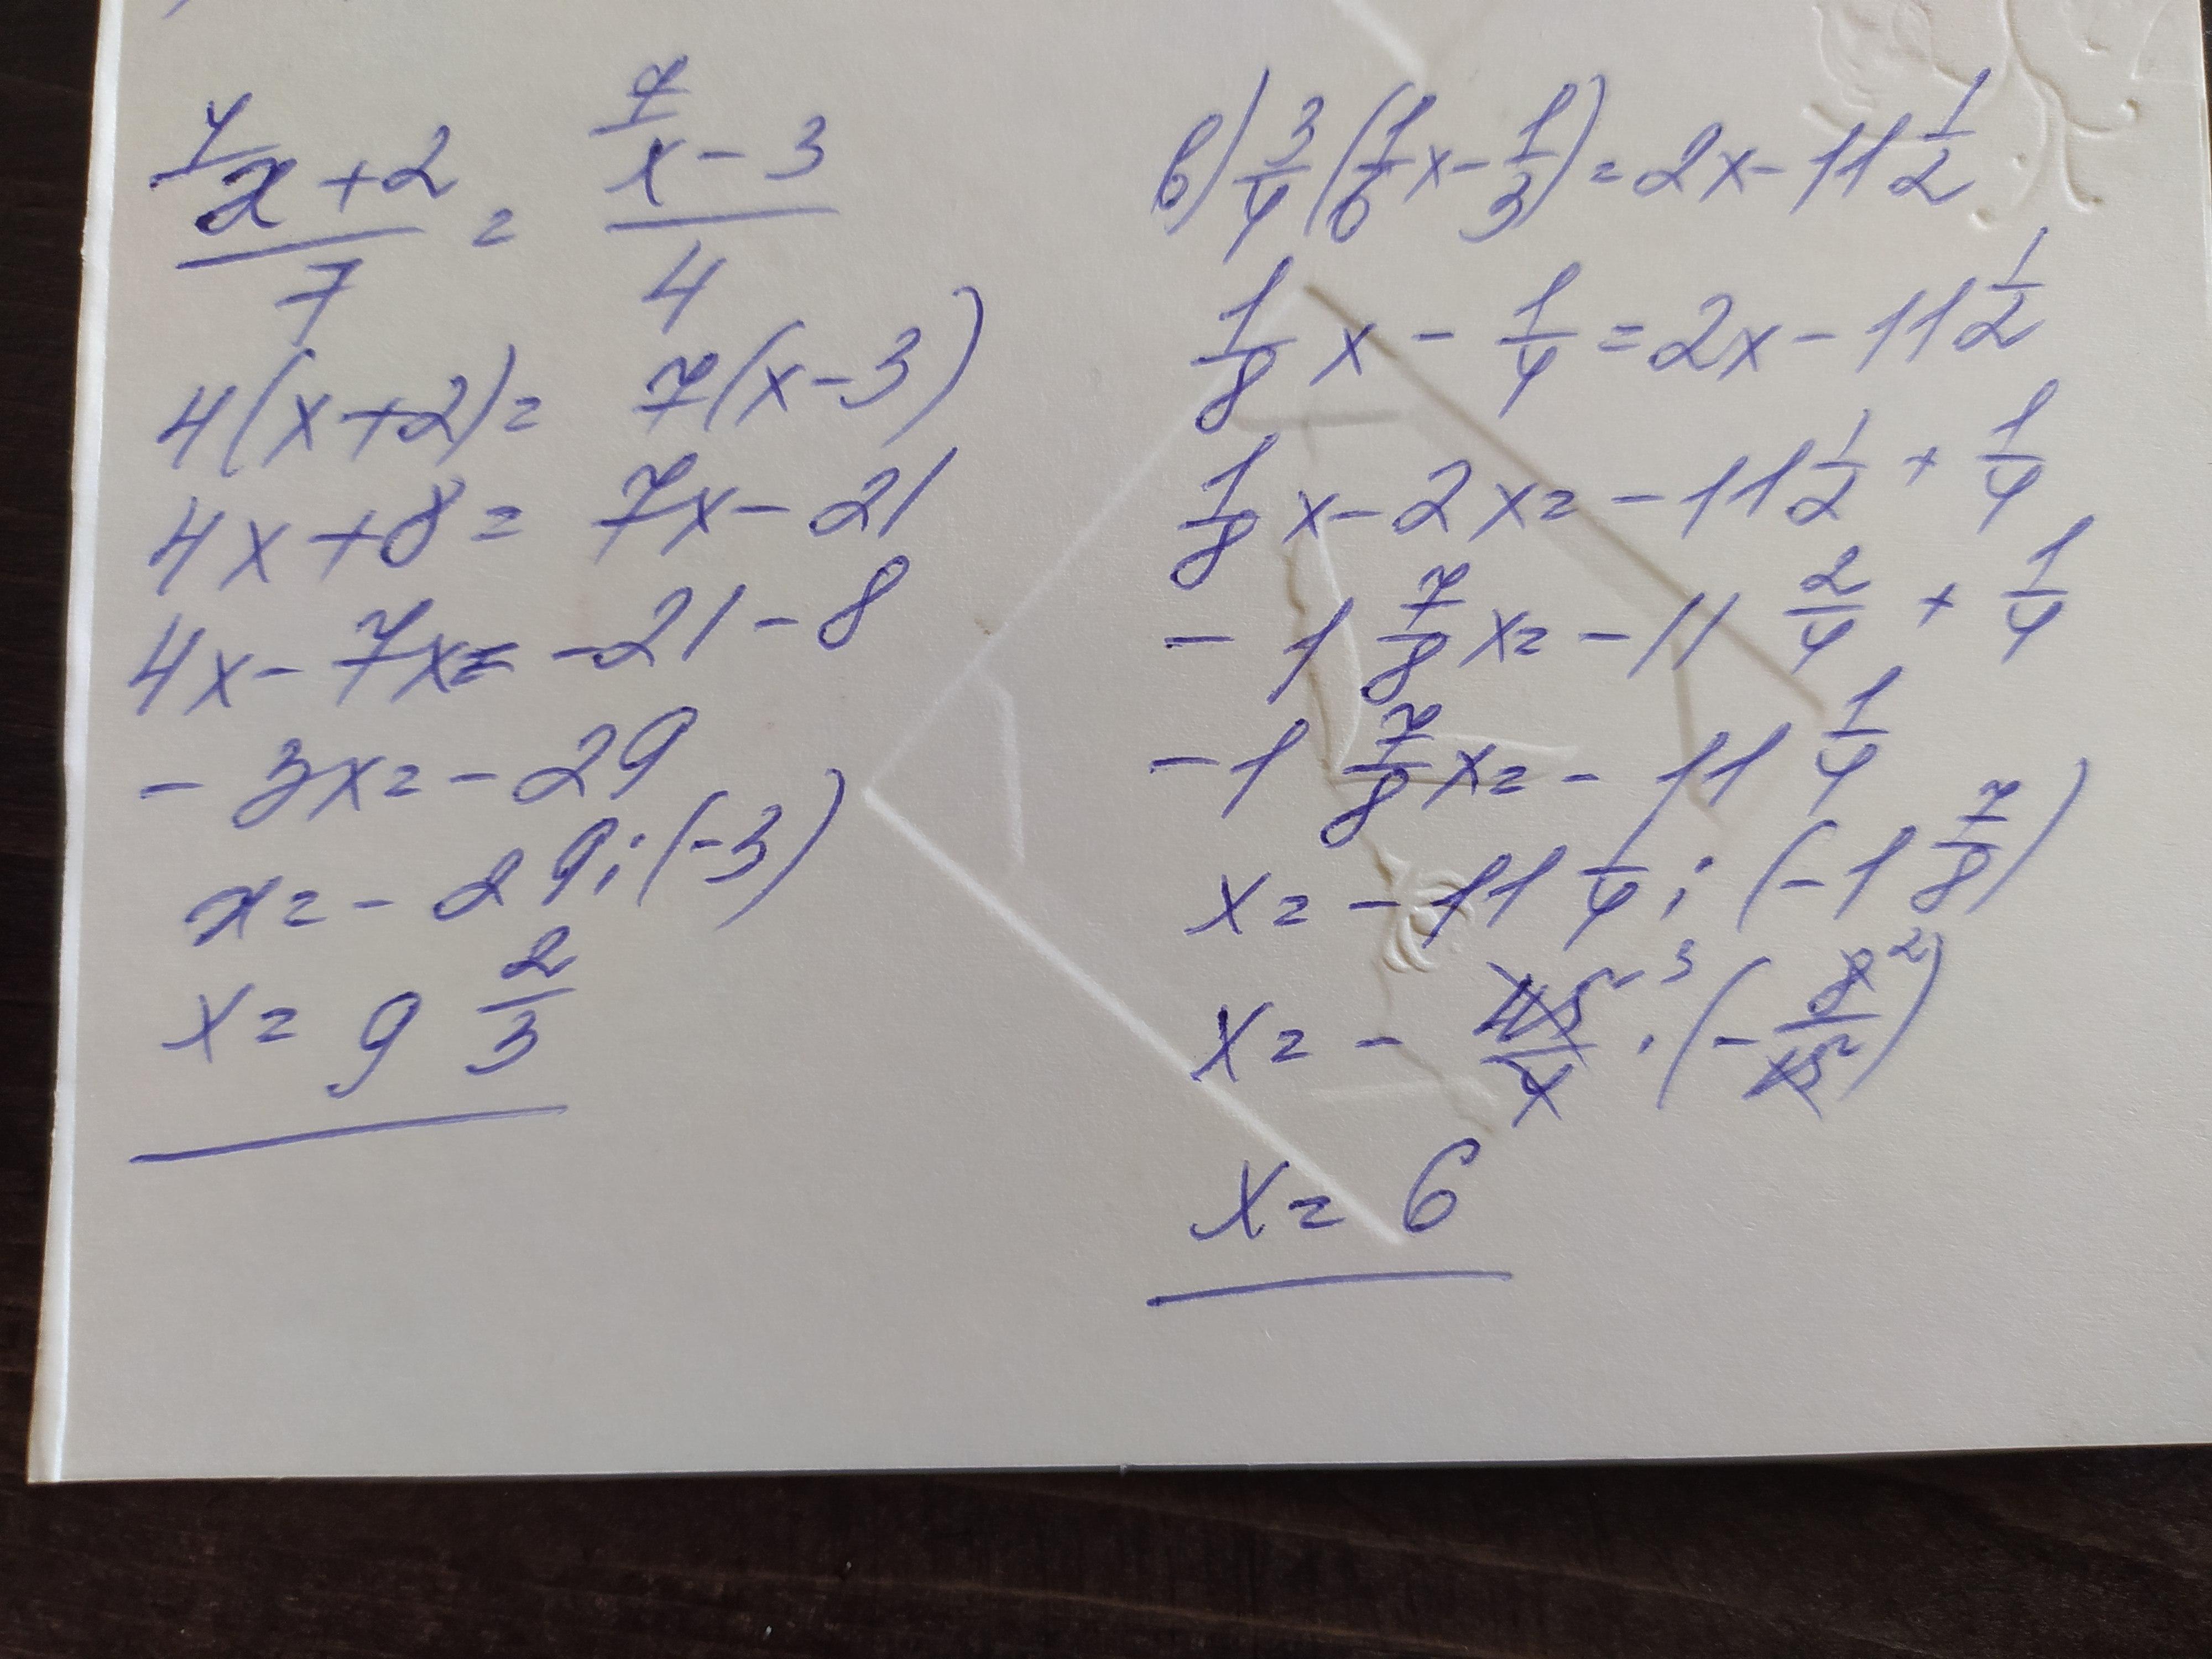 4/ x + 2 / 7 = 7/ x - 3 / 4
4(x+2)= 7(x-3)
4x+8= 7x-21
4x-7x= -21-8
-3x=-29
x=-29:(-3)
x= 9 2/3
в) 3/4 (1/6 x - 1/3) = 2x - 11 1/2
1/8 x - 1/4 = 2x - 11 1/2
1/8 x - 2x = - 11 1/2 + 1/4
- 1 7/8 x = - 11 2/4 + 1/4
- 1 7/8 x = - 11 1/4
x = - 11 1/4 : (- 1 7/8)
x = - 45 3 / 4 · (- 8 2 / 15)
x = 6